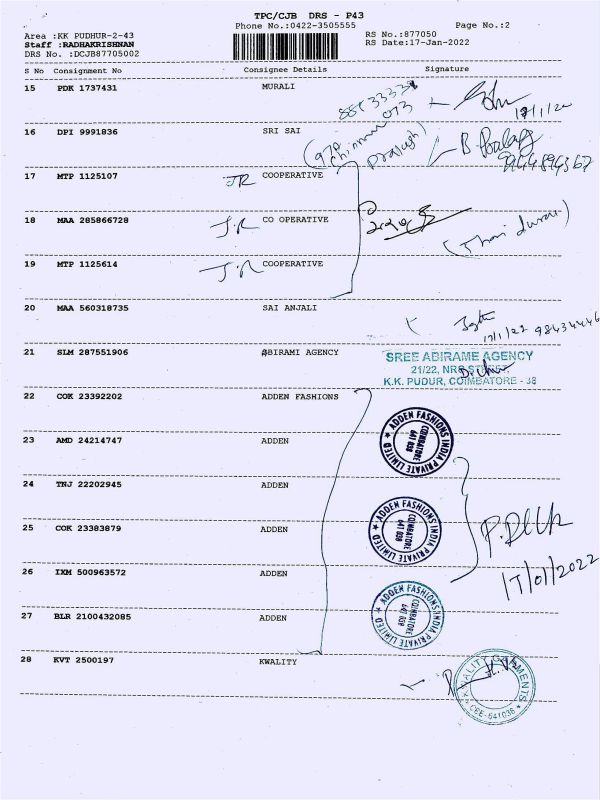 TPC/CJB DRS - P43
Phone No.:0422-3505555 Page No.:2
Area :KK PUDHUR-2-43 RS No.:877050
Staff :RADHAKRISHNAN RS Date:17-Jan-2022
DRS No. :DCJB87705002
S No Consignment No Consignee Details Signature
15 PDK 1737431 MURALI
17/1/22
16 DPI 9991836 SRI SAI
17 MTP 1125107 JR COOPERATIVE
18 MAA 285866728 J.R CO OPERATIVE
19 MTP 1125614 J.R COOPERATIVE
20 MAA 560318735 SAI ANJALI
17/1/22
21 SLM 287551906 ABIRAMI AGENCY
SREE ABIRAME AGENCY
21/22, NRG STREET,
K.K. PUDUR, COIMBATORE - 38
22 COK 23392202 ADDEN FASHIONS
23 AMD 24214747 ADDEN
ADDEN FASHIONS INDIA PRIVATE LIMITED
COIMBATORE
641 038
24 TNJ 22202945 ADDEN
25 COK 23383879 ADDEN
ADDEN FASHIONS INDIA PRIVATE LIMITED
COIMBATORE
641 038
17/01/2022
26 IXM 500963572 ADDEN
27 BLR 2100432085 ADDEN
ADDEN FASHIONS INDIA PRIVATE LIMITED
COIMBATORE
641 038
28 KVT 2500197 KWALITY